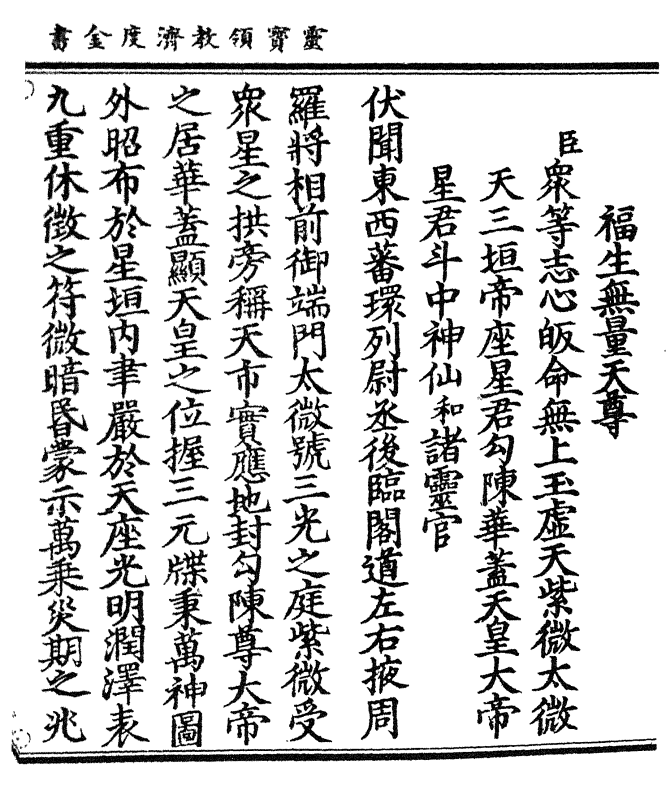 靈寳領教濟度金書
福生無量天尊
臣衆等志心皈命無上玉虚天紫微太微
天三垣帝座星君勾陳華蓋天皇大帝
星君斗中神仙和諸靈官
伏聞東西蕃環列尉丞後臨閣道左右掖周
羅將相前御端門太微號三光之庭紫微受
衆星之拱旁稱天市實應地封勾陳尊大帝
之居華蓋顯天皇之位握三元牒秉萬神圖
外昭布於星垣内聿嚴於天座光明潤澤表
九重休徵之符微暗昬蒙示萬乗災期之兆